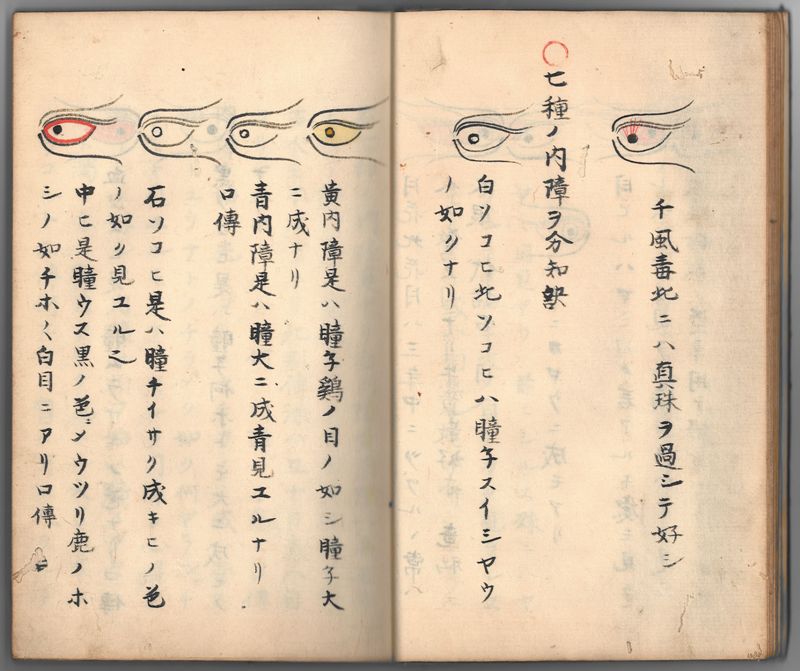 千風毒此ニハ真珠ヲ過シテ好シ
七種ノ内障ヲ分知訣
白ソコヒ此ソコヒハ瞳子スイミヤウ
ノ如クナリ
黄内障是ハ瞳子鷄ノ目ノ如シ瞳子大
ニ成ナリ
青内障是ハ瞳大ニ成青見ユルナリ
口傳
石ソコヒ是ハ瞳チイサク成キヒノ色
ノ如ク見ユル
中ヒ是瞳ウス黒ノ色ニメウツリ鹿ノホ
シノ如チホ〱白目ニアリ口傳